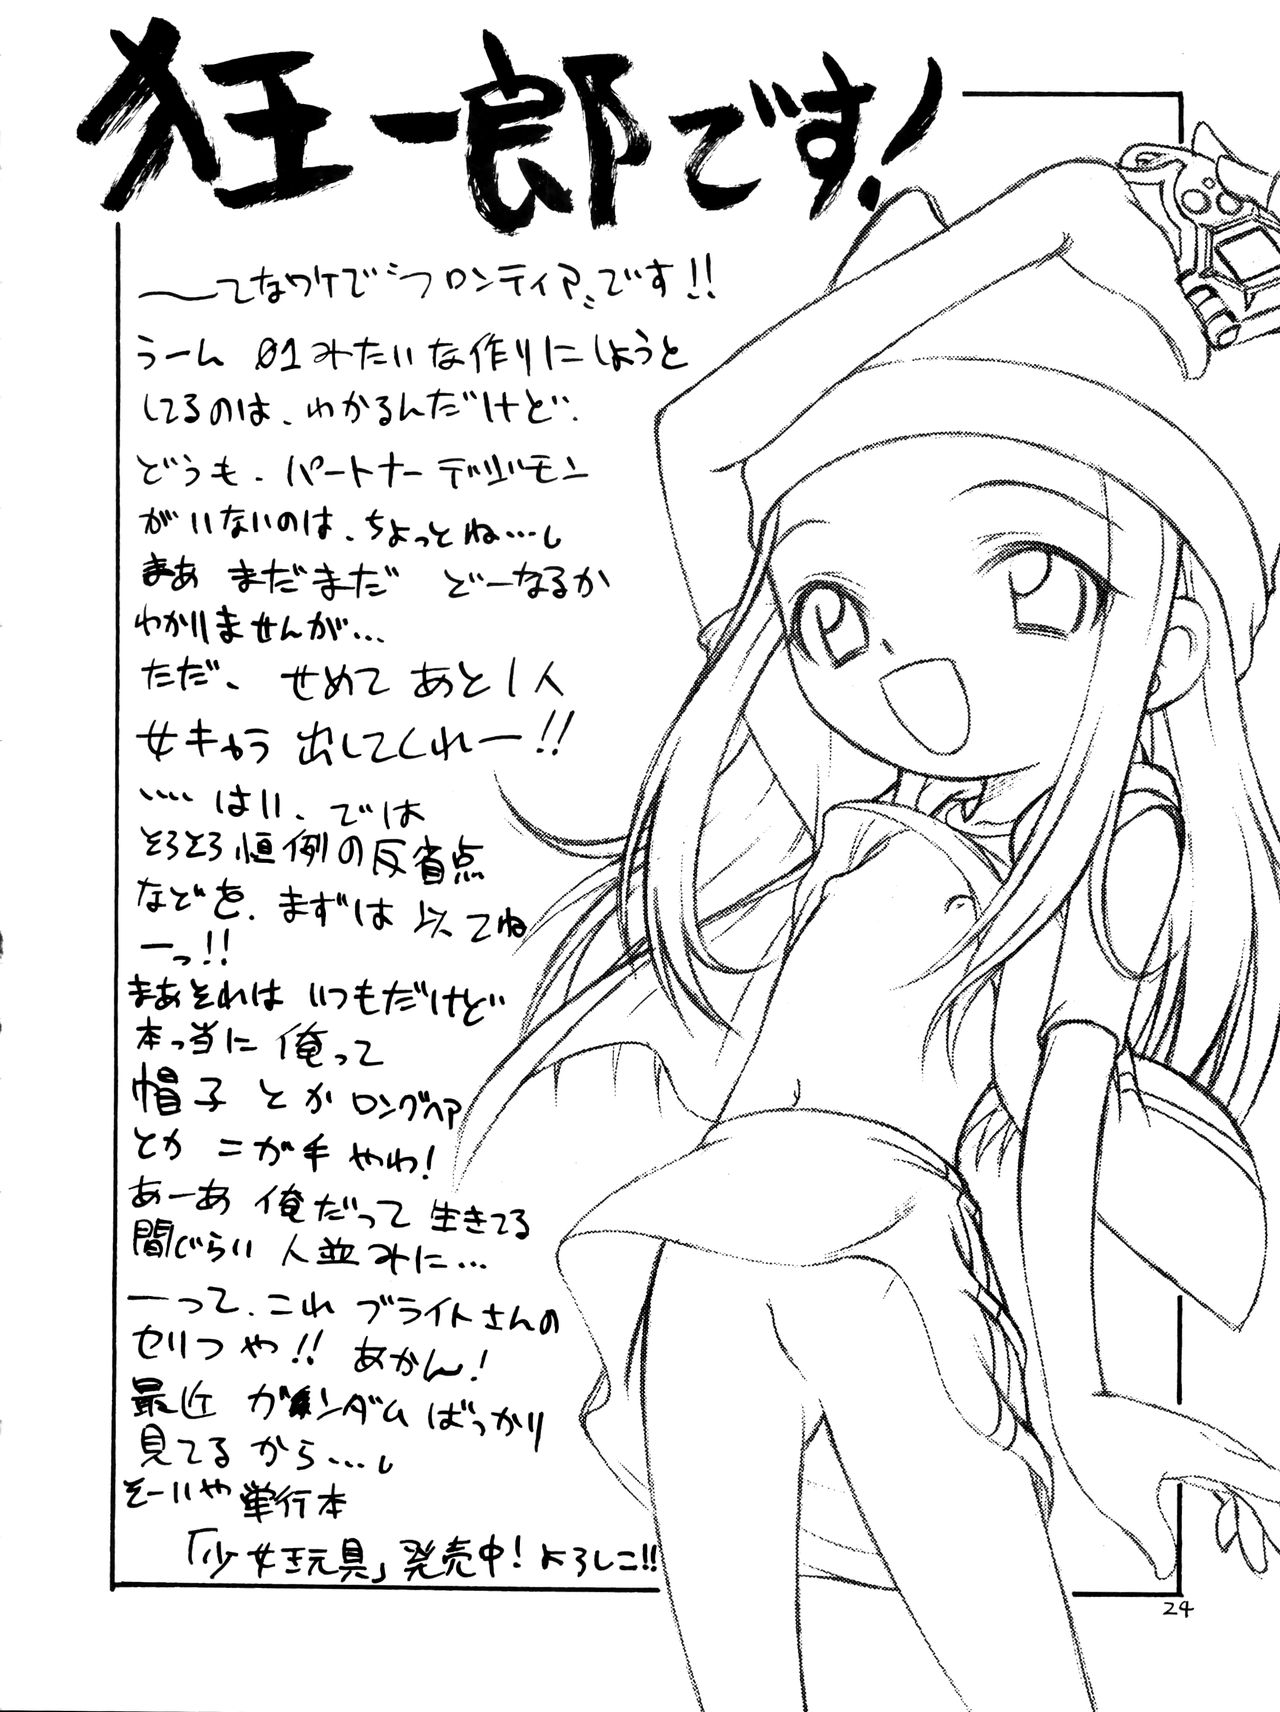 狂一郎です!
〜てなワケで〝フロンティア〟です!!
うーん 01みたいな作りにしようと
してるのは、わかるんだけど、
どうも、パートナーデジモン
がいないのは、ちょっとね…。
まあ まだまだ どーなるか
わかりませんが…
ただ、せめて あと1人
女キャラ 出してくれー!!
…はい、では
そろそろ恒例の反省点
などを、まずは 似てね
ーっ!!
まあそれは いつもだけど
本っ当に 俺って
帽子 とか ロングヘア
とか ニガ手 やわ!
あーあ 俺だって 生きてる
間ぐらい 人並みに…
ーって、これ ブライトさんの
セリフ や!! あかん!
最近 ガンダム ばっかり
見てる から…。
そーいや 単行本
「少女玩具」発売中! よろしこ!!
24